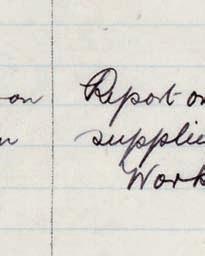 Report on
supplie
Work